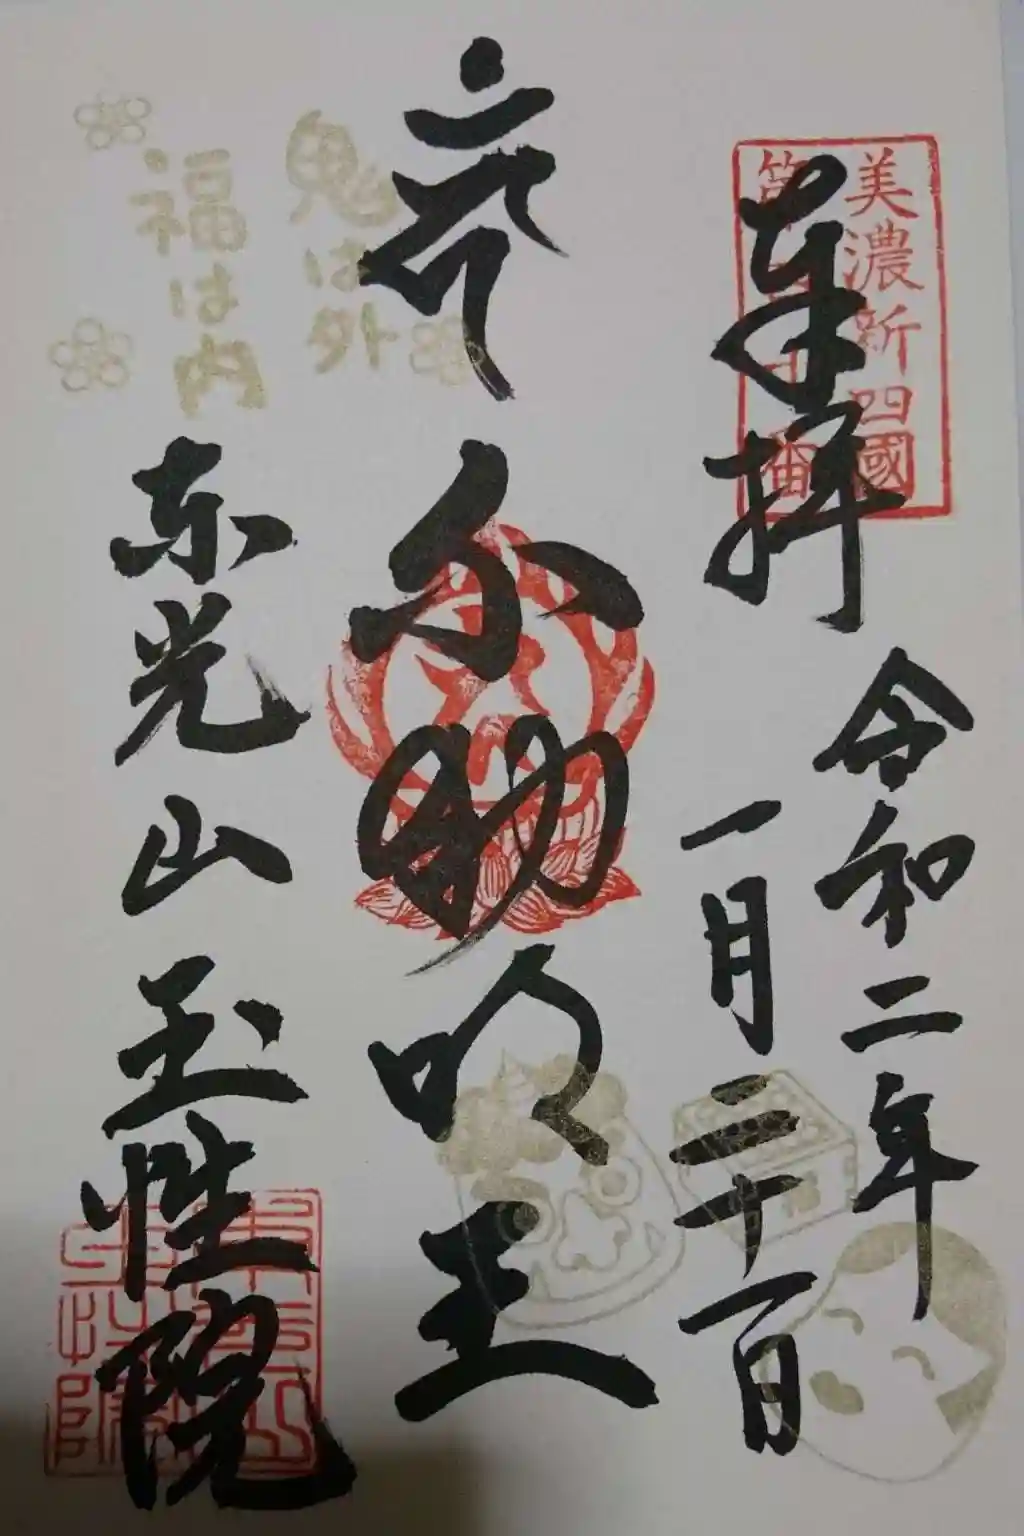 美濃新四國
第
番
奉拝
令和二年
一月三十一日
不動明王
鬼は外
福は内
東光山玉性院